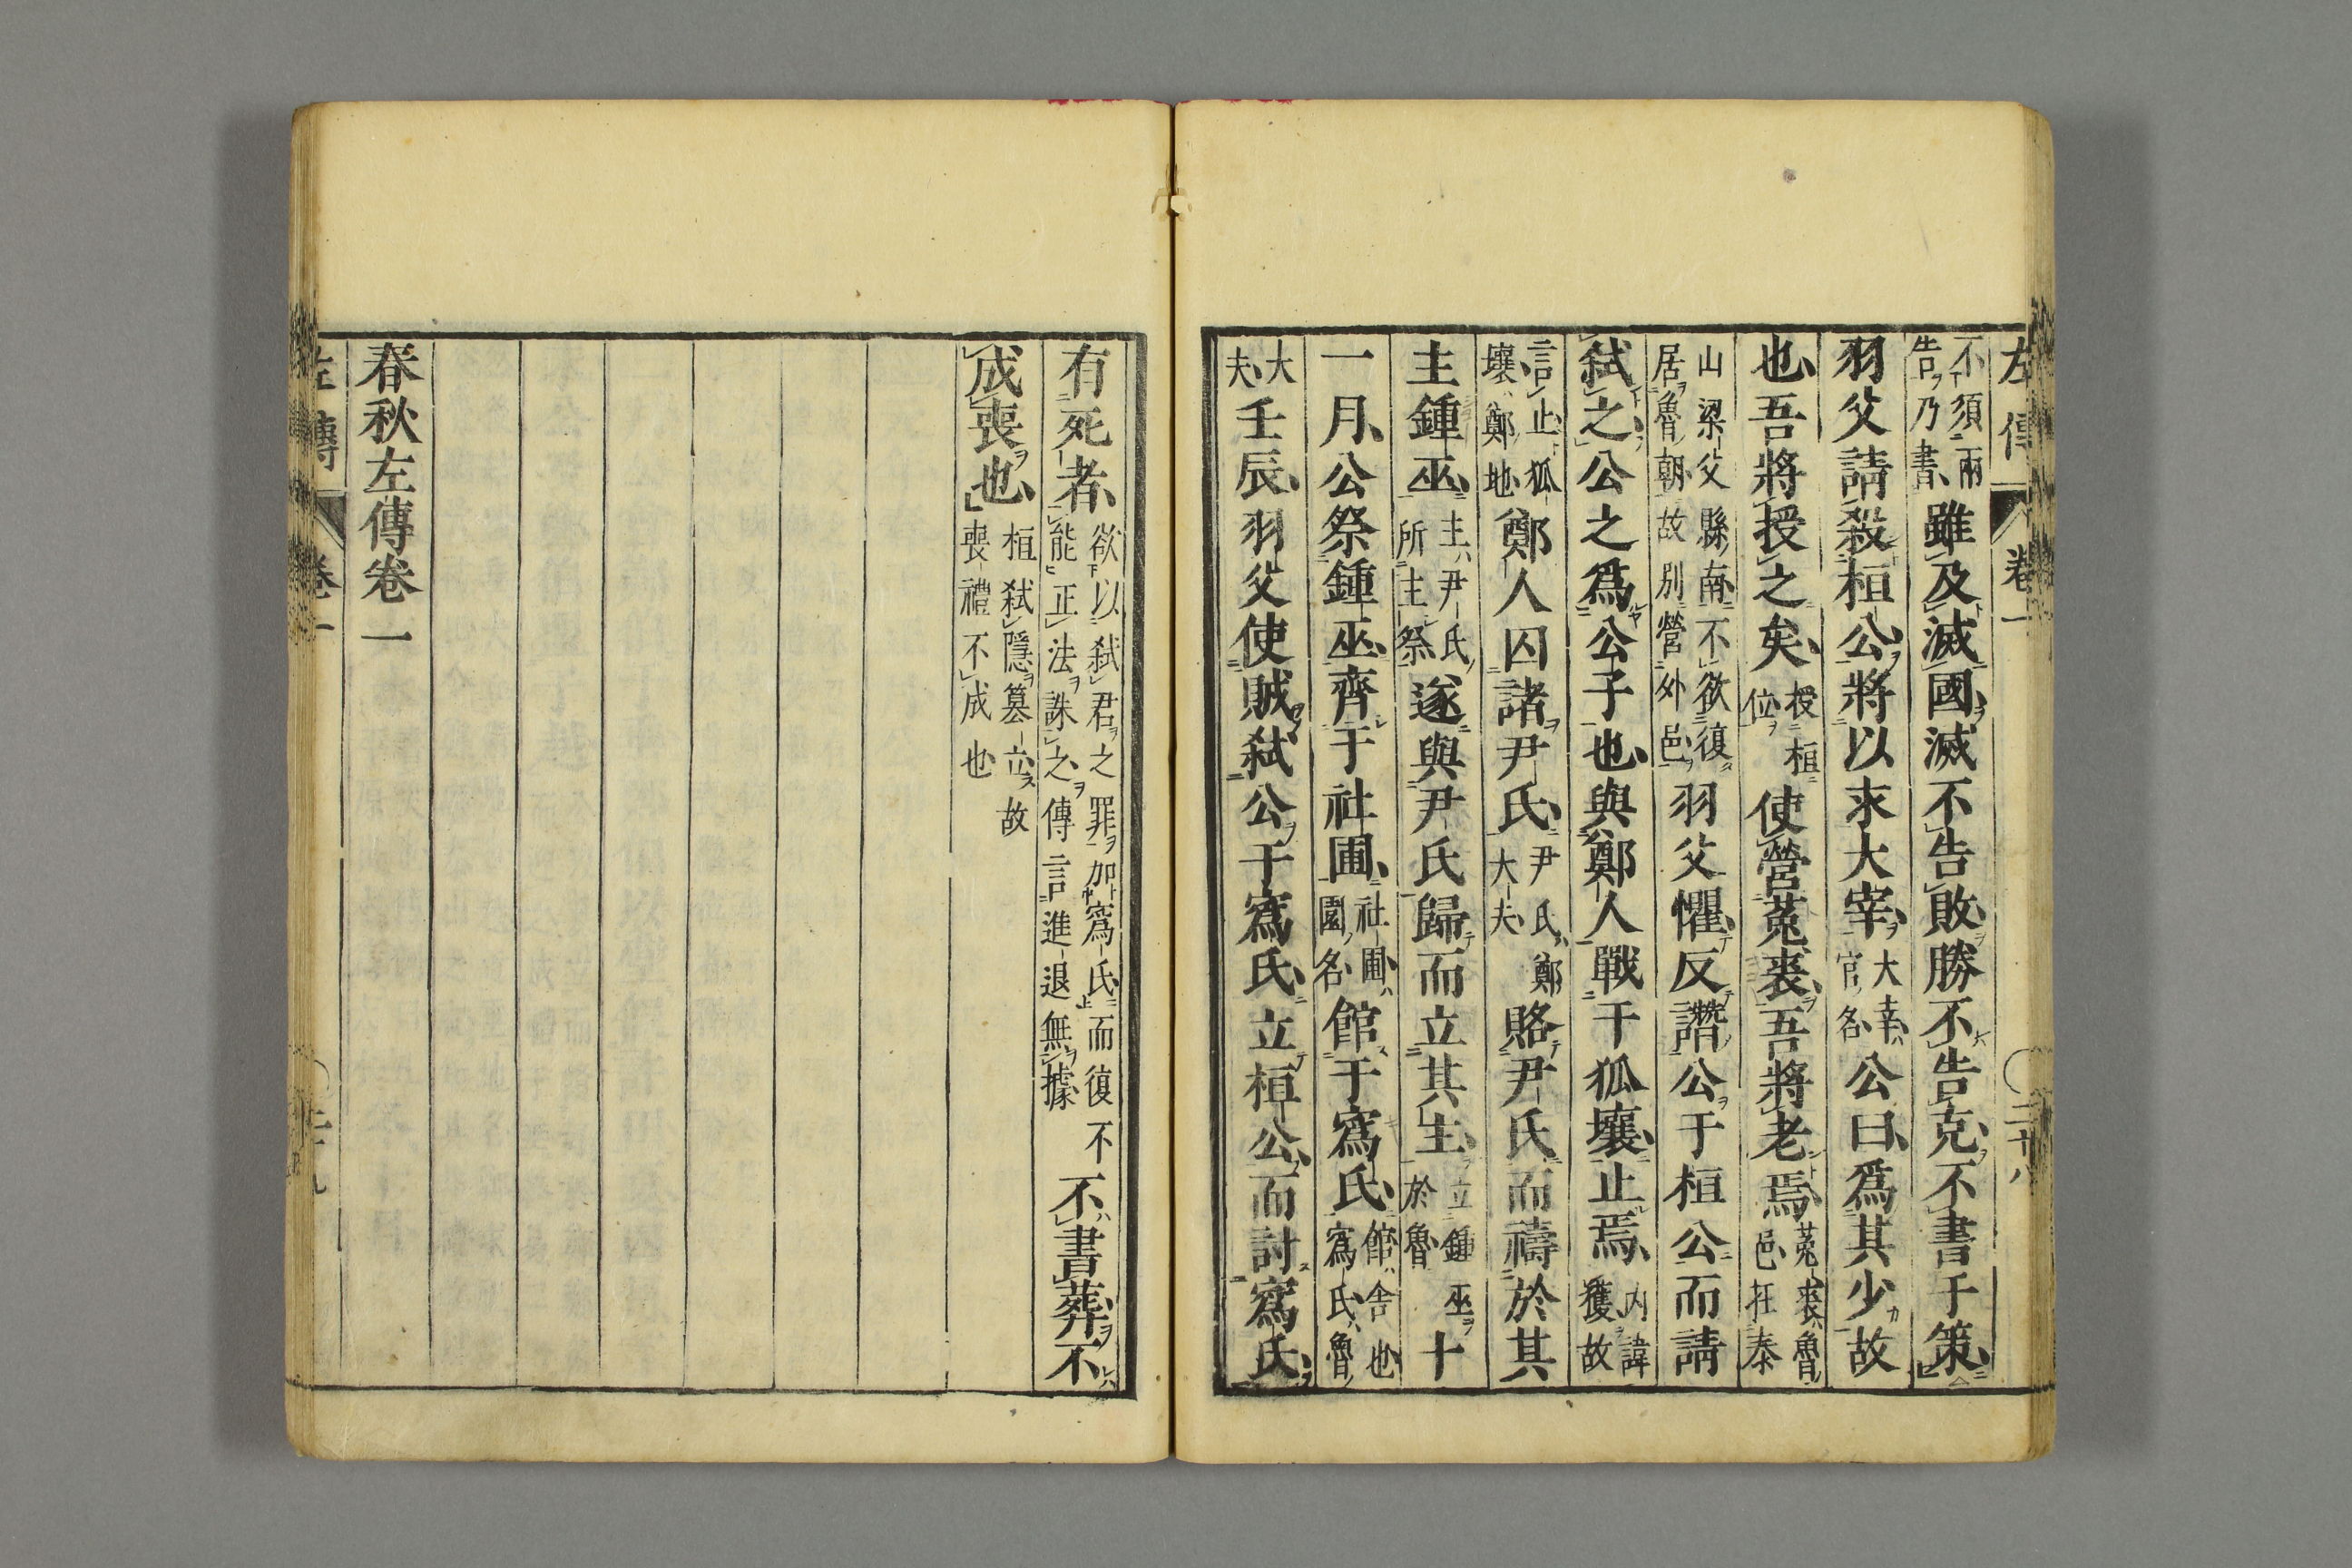 左傳 卷一 二十八
不須兩告乃書雖及滅國滅不告敗勝不告克不書于策
羽父請殺桓公將以求大宰大宰官名公曰爲其少故
也吾將授之矣授桓位使營菟裘吾將老焉菟裘魯邑在泰
山梁父縣南不欲復居魯朝故別營外邑羽父懼反譖公于桓公而請
弑之公之爲公子也與鄭人戰于狐壤止焉内諱獲故
言止狐壤鄭地鄭人囚諸尹氏尹氏鄭大夫賂尹氏而禱於其
主鍾巫主尹氏所主祭遂與尹氏歸而立其主立鍾巫於魯十
一月公祭鍾巫齊于社圃社圃園名館于寪氏館舍也寪氏魯
大夫壬辰羽父使賊弑公于寪氏立桓公而討寪氏
有死者欲以弑君之罪加寪氏而復不能正法誅之傳言進退無據不書葬不
成喪也桓弑隱簒立故喪禮不成也
春秋左傳卷一
左傳 卷一